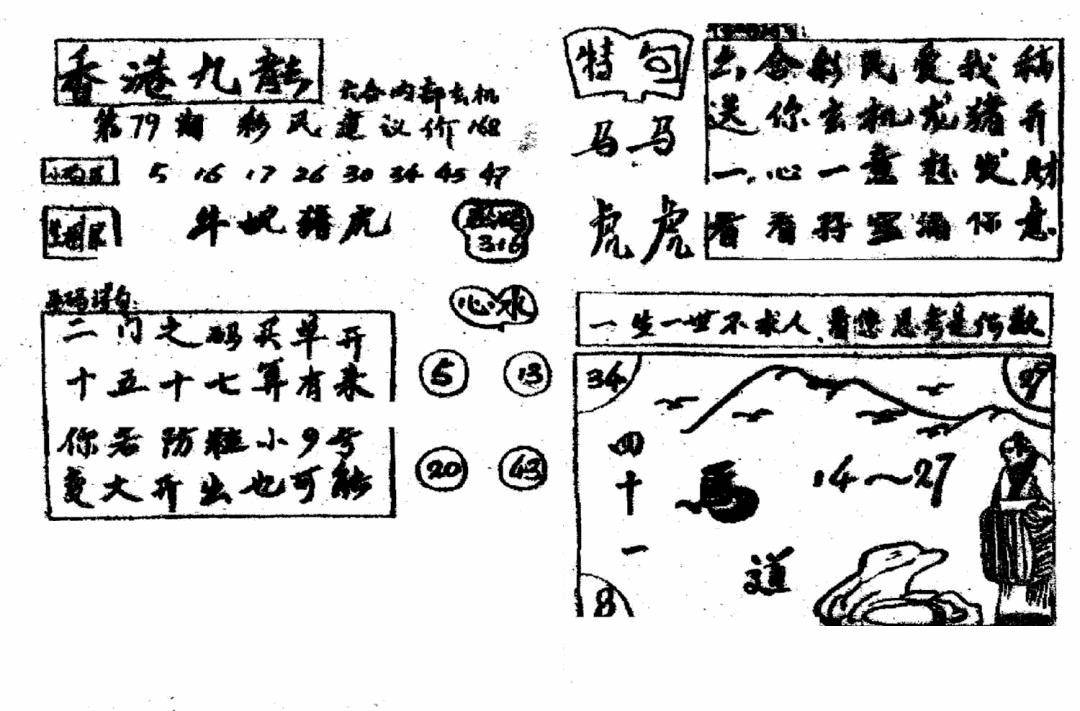 香港九龍
六合内部玄机
第79期 彩民建议价168
5 16 17 26 30 34 45 47
牛蛇猪虎
316
心水
二门之码买单开
十五十七算有来
你若防住小9号
变大开出也可能
5 13
20 43
特句
马马
虎虎
六合彩民爱我稿
送你玄机龙猪开
一心一意想发财
看看
你意
一生一世不求人
34
四十一
马
14~27
道
8